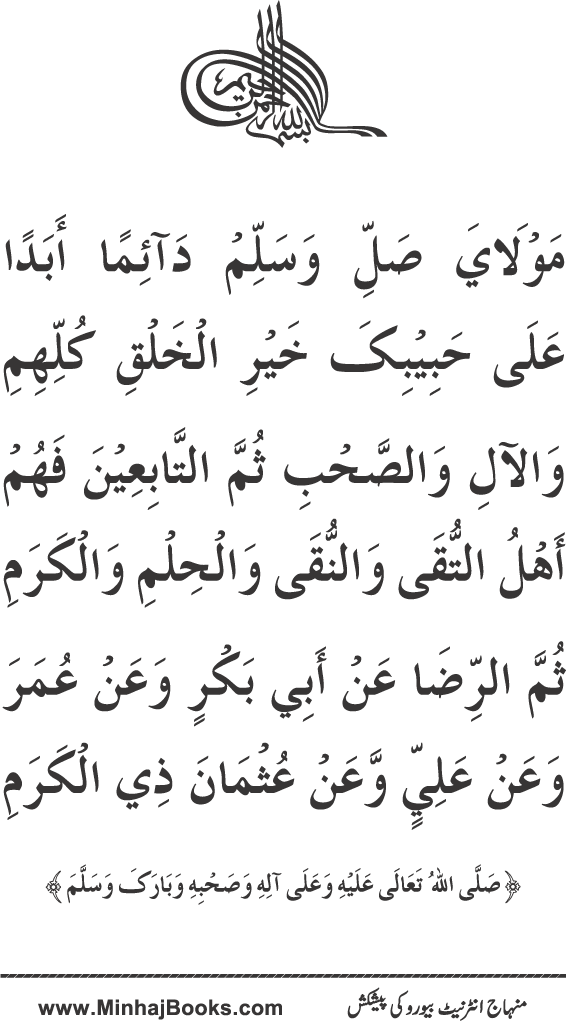 بسم الله الرحمن الرحيم
مَوْلَايَ صَلِّ وَسَلِّمْ دَآئِمًا أَبَدًا
عَلَى حَبِيْبِکَ خَيْرِ الْخَلْقِ كُلِّهِمِ
وَالآلِ وَالصَّحْبِ ثُمَّ التَّابِعِيْنَ فَهُمْ
أَهْلُ التُّقَى وَالنُّقَى وَالْحِلْمِ وَالْكَرَمِ
ثُمَّ الرِّضَا عَنْ أَبِي بَكْرٍ وَعَنْ عُمَرَ
وَعَنْ عَلِيٍّ وَّعَنْ عُثْمَانَ ذِي الْكَرَمِ
﴿صَلَّى اللهُ تَعَالَى عَلَيْهِ وَعَلَى آلِهِ وَصَحْبِهِ وَبَارَکَ وَسَلَّمَ﴾
منہاج انٹرنیٹ بیورو کی پیشکش
www.MinhajBooks.com